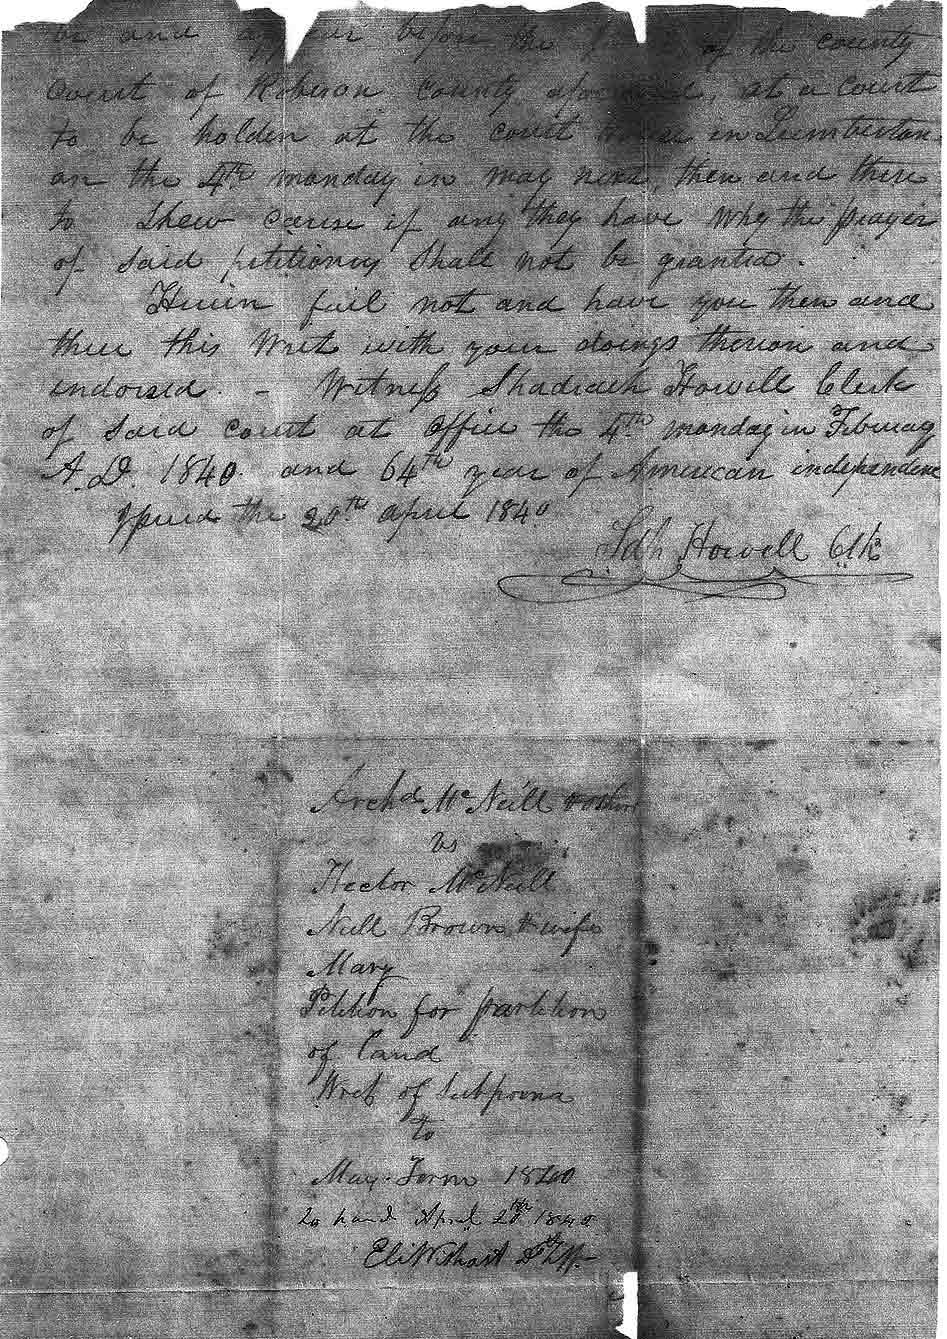 be and appear before the of the county
Court of Robeson County aforesaid, at a Court
to be holden at the court house in Lumberton
on the 4th monday in may next, then and there
to Shew cause if any they have why the prayer
of said petitioners Shall not be granted.
Herein fail not and have you then and
there this Writ with your doings thereon and
endorsed. - Witness Shadrach Howell Clerk
of said court at office the 4th monday in February
A.D. 1840. and 64th year of American independence
Issued the 20th april 1840
Sdh Howell Clk
Archd McNeill & others
vs
Hector McNeill
Neill Brown & wife
Mary
Petition for partition
of Land
Writ of Subpoena
to
May Term 1840
To hand April 20th 1840
Eli Wishart Shff